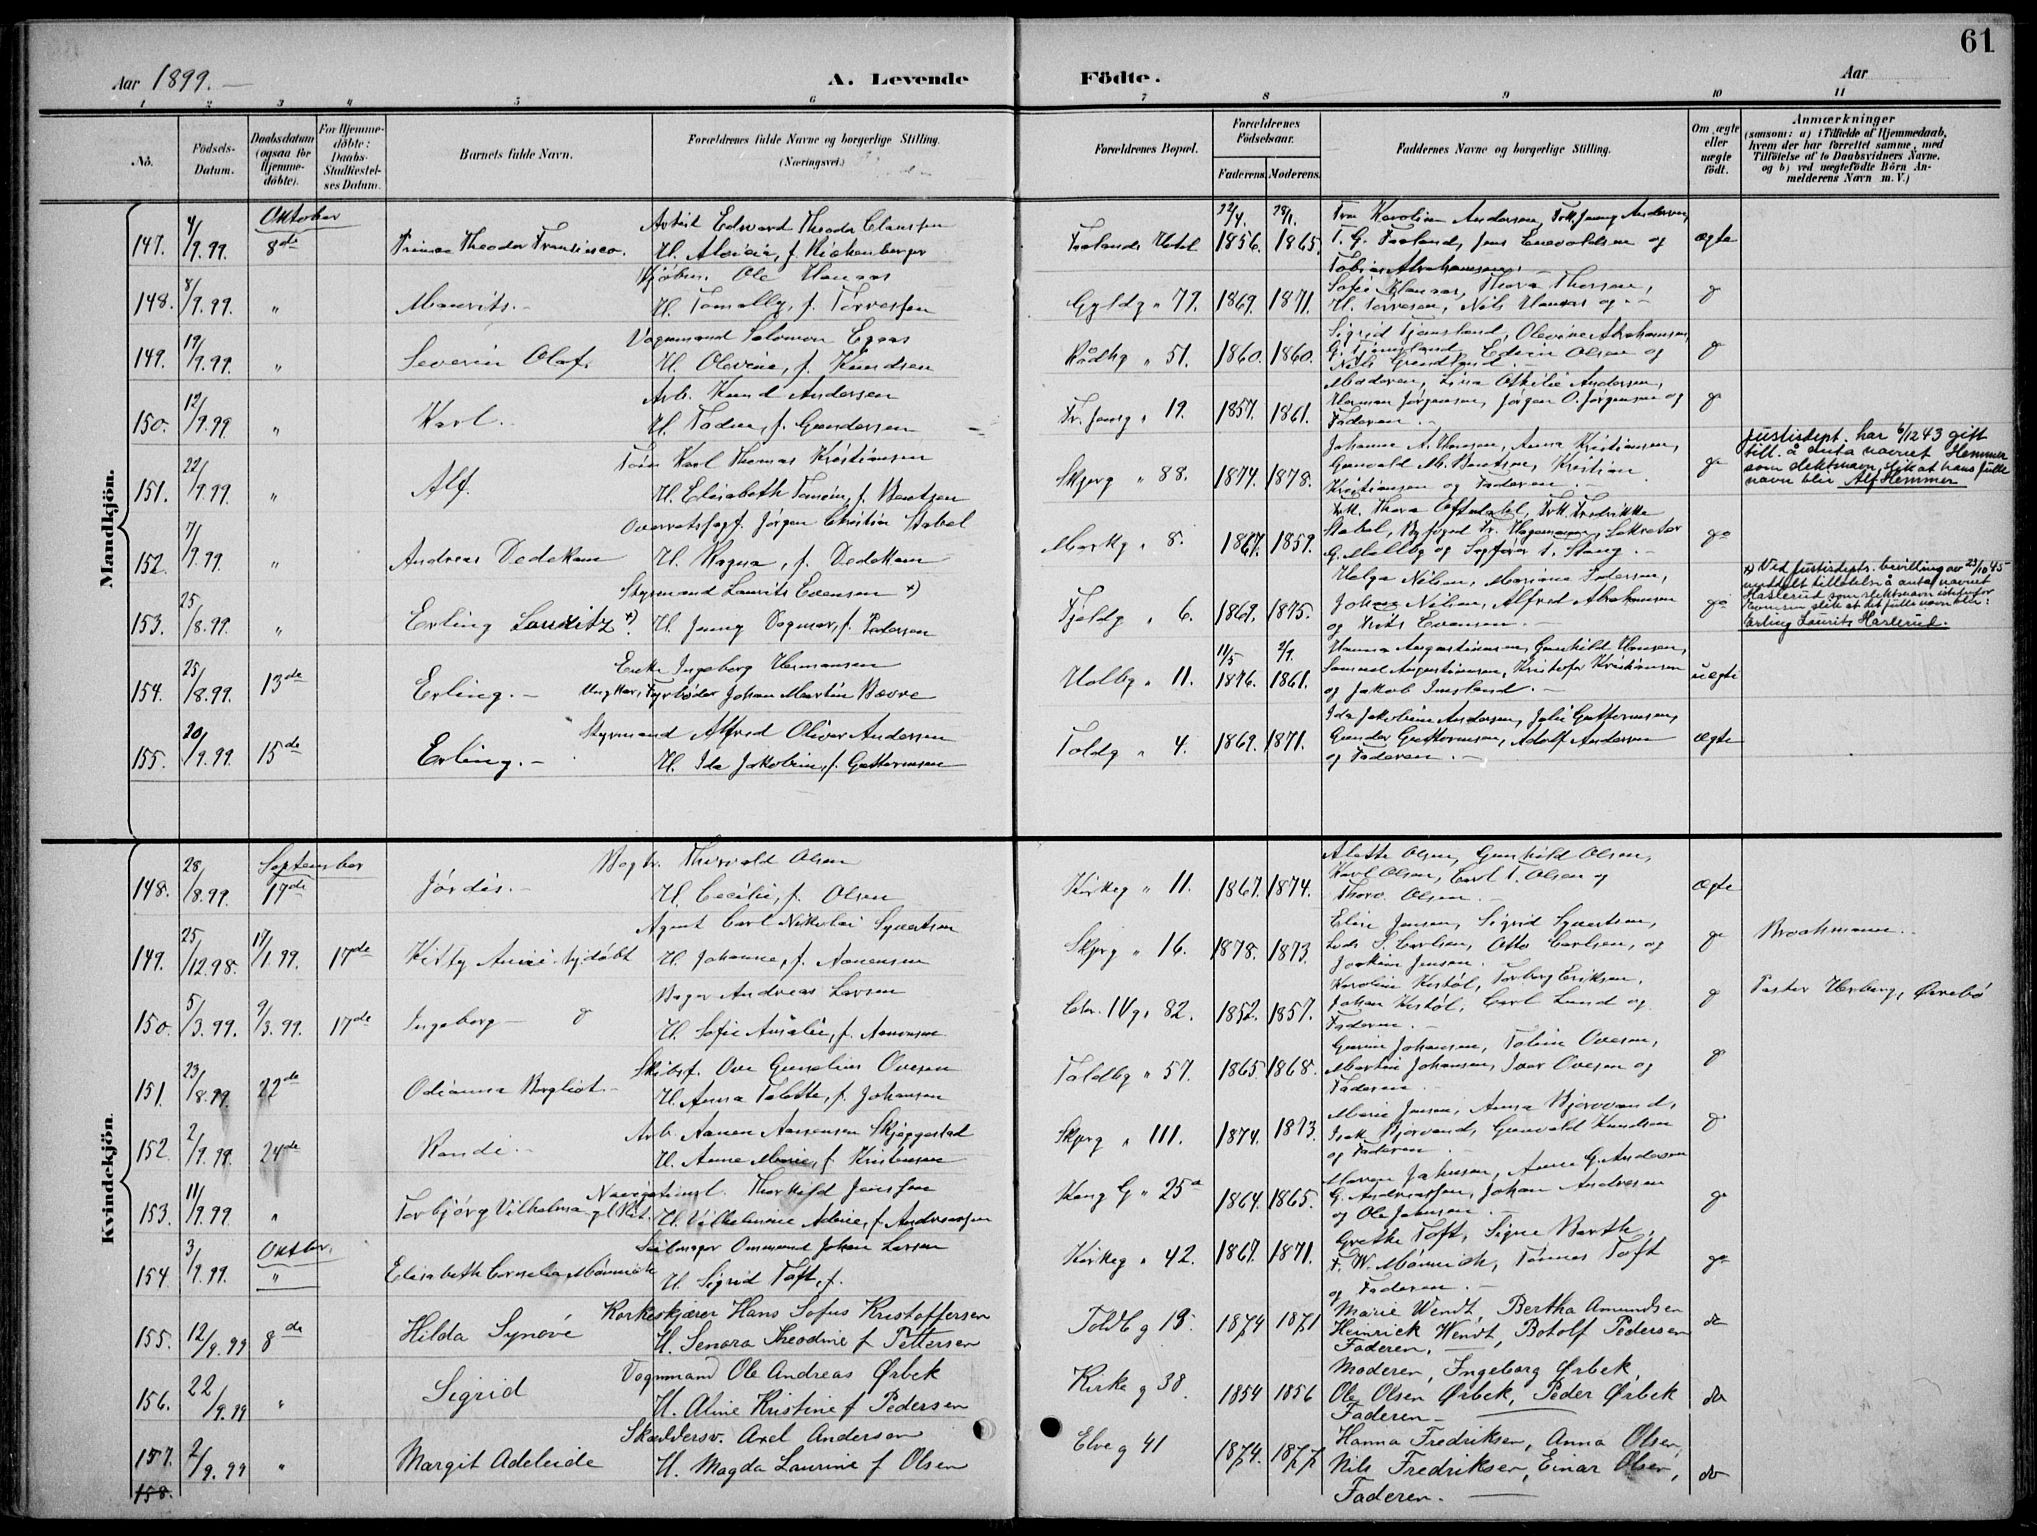 61
Aar 1899. —
A. Levende Födte.
Aar
1 2 3 4 5 6 7 8 9 10 11
No.
Födsels-Datum.
Daabsdatum (ogsaa for Hjemme-döbte).
For Hjemme-döbte: Daabs-Stadfæstel-ses Datum.
Barnets fulde Navn.
Forældrenes fulde Navne og borgerlige Stilling. (Næringsvei.)
Forældrenes Bopæl.
Forældrenes Födselsaar.
Faderens. Moderens.
Faddernes Navne og borgerlige Stilling.
Om ægte eller uægte født.
Anmærkninger
(saasom: a) i Tilfælde af Hjemmedaab, hvem der har forrettet samme, med Tilföielse af to Daabsvidners Navne, og b) ved uægtefödte Börn An-melderens Navn m. V.)
Mandkjön.
Oktober
147. 4/9.99. 8de Theodor Francisco. Arbeid Edvard Theodor Claussen
Hotel 1856. 1865. Fru Karoline Andersen, Jenny Andersen,
T. G. Jens Enevoldsen og ægte
Tobias Abrahamsen.
148. 8/9.99. " Maurits. — Ole Hansas
H. f. Torvesen Gyldg " 77. 1869. 1871.
149. 19/9.99. " Severin Olaf. Vognmand Salomon Egaas
H. Olevine, f. Knudsen Rådhg " 51. 1860. 1860. Sigrid Tjomsland, Olevine Abrahamsen,
G. Tjomsland, Edvin Olsen og
150. 12/9.99. " Karl. Arb. Knud Andersen
H. Tadea, f. Gundersen " 19. 1857. 1861. Moderen, Lina Othilie Andersen,
Herman Jörgensen, Jörgen O. Jörgensen og
Faderen. —
151. 22/9.99. " Alf. Karl Thomas Kristiansen
H. Elisabeth f. Bentzen Skjerg " 88. 1874. 1878. Johanne A. Hansen, Anna Kristiansen,
Gunvald M. Bentsen, Kristian
Kristiansen og Faderen. —
Justisdept. har 6/12 43 gitt
till. å anta navnet Hemmer
som slektsnavn, slik at hans fulle
navn blir Alf Hemmer
152. 7/9.99. " Andreas Dedekam Overretssagf. Jörgen Christian Stabel
H. Ragna, f. Dedekam " 8. 1867. 1859. Frk. Thora Oftedahl, Frk. Fredrikke
Stabel, Byfoged Fr. Sekretær
G. og Sagförer Stang. —
153. 25/8.99. " Erling Lauritz x) Styrmand Laurits Evensen x)
H. Jenny Dagmar, f. Pedersen Fjeldg " 6. 1869. 1875. Helga Nilsen, Mariane Pedersen,
Johan Nilsen, Alfred Abrahamsen
og Evensen. —
x) Ved Justisdepts. bevilling av 23/10 45
meddelt tillatelse å anta navnet
Haslerud som slektsnavn istedenfor
Evensen slik at det fulle navn blir:
Erling Laurits Haslerud.
154. 25/8.99. 13de Erling. — Enke Ingeborg Hermansen
Ungkar, Fyrböder Johan Martin Bævre Holbg " 11. 11/5 1876. 2/9. 1861. Hanna Augustinsen, Gunhild Hansen,
Samuel Augustinsen, Kristofer Kristiansen
og Jakob — uægte
155. 20/9.99. 15de Erling. — Styrmand Alfred Oliver Andersen
H. Ida Jakobine, f. Guttormsen Toldg " 4. 1869. 1871. Ida Jakobine Andersen, Julie Guttormsen,
Gunder Guttormsen, Adolf Andersen
og Faderen. — ægte
Kvindekjön
September
148. 28/8.99. 17de Jördis. — Bogtr. Thorvald Olsen
H. Cecilie, f. Olsen Kirkeg " 11. 1867. 1874. Alette Olsen, Gunhild Olsen,
Karl Olsen, Carl T. Olsen og
Thorv. Olsen. — ægte
149. 25/12.98. 17/1.99. 17de Kitty hjdöbt Agent Carl Nikolai Syvertsen
H. Johanne, f. Aanensen Skjerg " 16. 1878. 1873. Elise Jensen, Sigrid Syvertsen,
Carlsen, Otto Carlsen, og
Joakim Jensen. Broohmann.
150. 5/3.99. 9/3.99. 17de Ingeborg Bager Andreas Larsen
H. Sofie Amalie, f. Aanensen Chr. IVg. 82. 1852. 1857. Karoline Torborg Eriksen,
Johan Carl Lund og
Faderen. — Pastor Herberg, Øvrebö
151. 23/8.99. 22de Odianna Borghist. Skibsf. Ove Gunelius Ovesen
H. Anna Tolette, f. Johansen Toldbg " 57. 1865. 1868. Johansen, Tobine Ovesen,
Martin Johansen, Iver Ovesen og
Faderen. —
152. 2/9.99. 24de Randi. — Arb. Aanen Aanensen Skjeggestad
H. Anne Marie, f. Kristensen Skjerg " 111. 1874. 1873. Marie Jensen, Anna Bjorvand,
Isak Bjorvand, Gunvald Knudsen
og Faderen. —
153. 11/9.99. " Torbjörg Vilhelmine Thorkild Jenssen
H. Vilhelmine f. Andreassen Kong G " 25a 1864. 1865. Maren Johnsen, Anne G. Andersen
G. Andreassen, Johan Andresen
og Ole Johnsen. —
Oktbr.
154. 3/9.99. " Elisabeth Cornelia Mönnich Ommund Johan Larsen
H. Sigrid Toft, f. Kirkeg " 42. 1867. 1871. Grethe Toft, Signe Barth,
F. W. Mönnich, Tönnes Toft
og Faderen. —
155. 12/9.99 8de Hilda Synöve Korkeskjærer Hans Sofus Kristoffersen
H. Senora Theodine f Pettersen Toldb g 19. 1874 1871 Marie Wendt, Bertha Amundsen
Heinrick Wendt, Botolf Pedersen
Faderen. — do
156. 22/9.99 " Sigrid Vognmand Ole Andreas Ørbek
H. Aline Kristine f Pedersen Kirke g 38. 1854 1856 Moderen, Ingeborg Ørbek,
Ole Olsen Ørbek, Peder Ørbek
Faderen — do
157. 2/9.99 " Margit Adeleide Axel Andersen
H. Magda Laurine f Olsen Elve g 41 1874. 1877 Hanna Fredriksen, Anna Olsen,
Nils Fredriksen, Einar Olsen,
Faderen. — do
158.